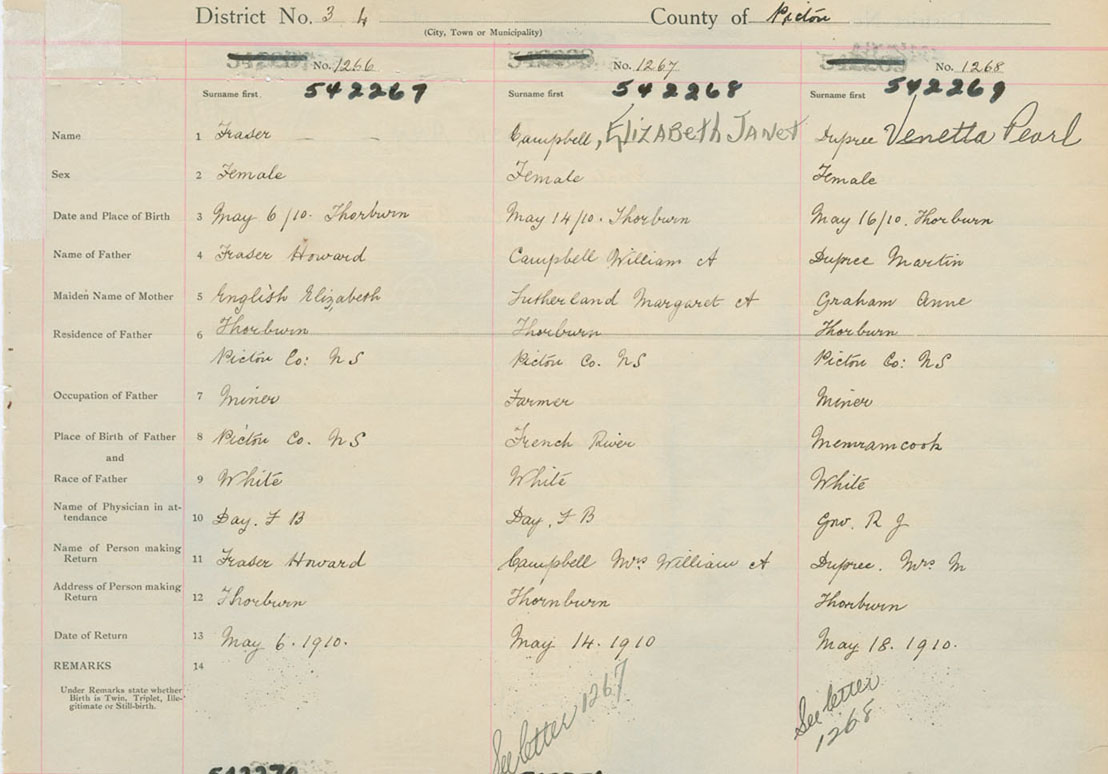 District No. 3 4 County of Pictou
(City, Town or Municipality)
No. 1266 No. 1267 No. 1268
Surname first 542267 Surname first 542268 Surname first 542269
Name 1 Fraser Campbell, Elizabeth Janet Dupree Venetta Pearl
Sex 2 Female Female Female
Date and Place of Birth 3 May 6/10. Thorburn May 14/10. Thorburn May 16/10. Thorburn
Name of Father 4 Fraser Howard Campbell William A Dupree Martin
Maiden Name of Mother 5 English Elizabeth Sutherland Margaret A Graham Anne
Residence of Father 6 Thorburn Thorburn Thorburn
Pictou Co: NS Pictou Co. NS Pictou Co: NS
Occupation of Father 7 Miner Farmer Miner
Place of Birth of Father 8 Pictou Co. NS French River Memramcook
and
Race of Father 9 White White White
Name of Physician in at-
tendance 10 Day. F B Day. F B R J
Name of Person making
Return 11 Fraser Howard Campbell Mrs William A Dupree. Mrs M
Address of Person making
Return 12 Thorburn Thornburn Thorburn
Date of Return 13 May 6. 1910. May 14. 1910 May 18. 1910.
REMARKS 14
Under Remarks state whether
Birth is Twin, Triplet, Ille-
gitimate or Still-birth.
See letter 1267
See letter
1268
542270